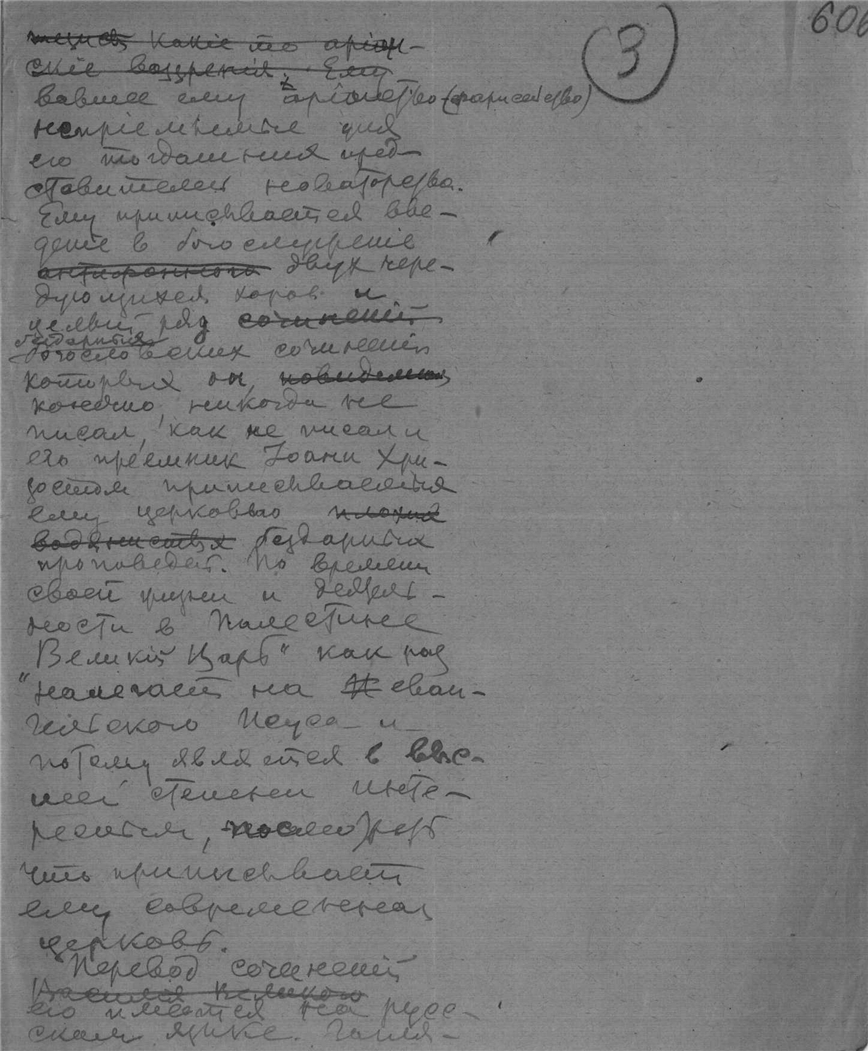 3
606
какіе то аріан-
скіе воззренія. Ему
вавшее ему аріанство (фарисейство)
непріемлемые для
его тогдашния пред-
ставителей новаторства.
Ему приписывается вве-
деніе в богослуженіе
антифонного двух чере-
дующихся хоров и
целый ряд сочиненій
бездарных
богословских сочиненій
которых он, повидимому
конечно, никогда не
писал, как не писал и
его преемник Іоанн Хри-
зостом приписываемыя
ему церковью плохия
водянистыя бездарных
проповедей. По времени
своей жизни и деятель-
ности в Палестине
Великій Царь" как раз
"налегает на еван-
гельского Исуса и
потому является в выс-
шей степени инте-
ресным, посмотреть
что приписывает
ему современная
церковь.
Перевод сочиненій
Василія Великого
его имеется на рус-
ском языке.